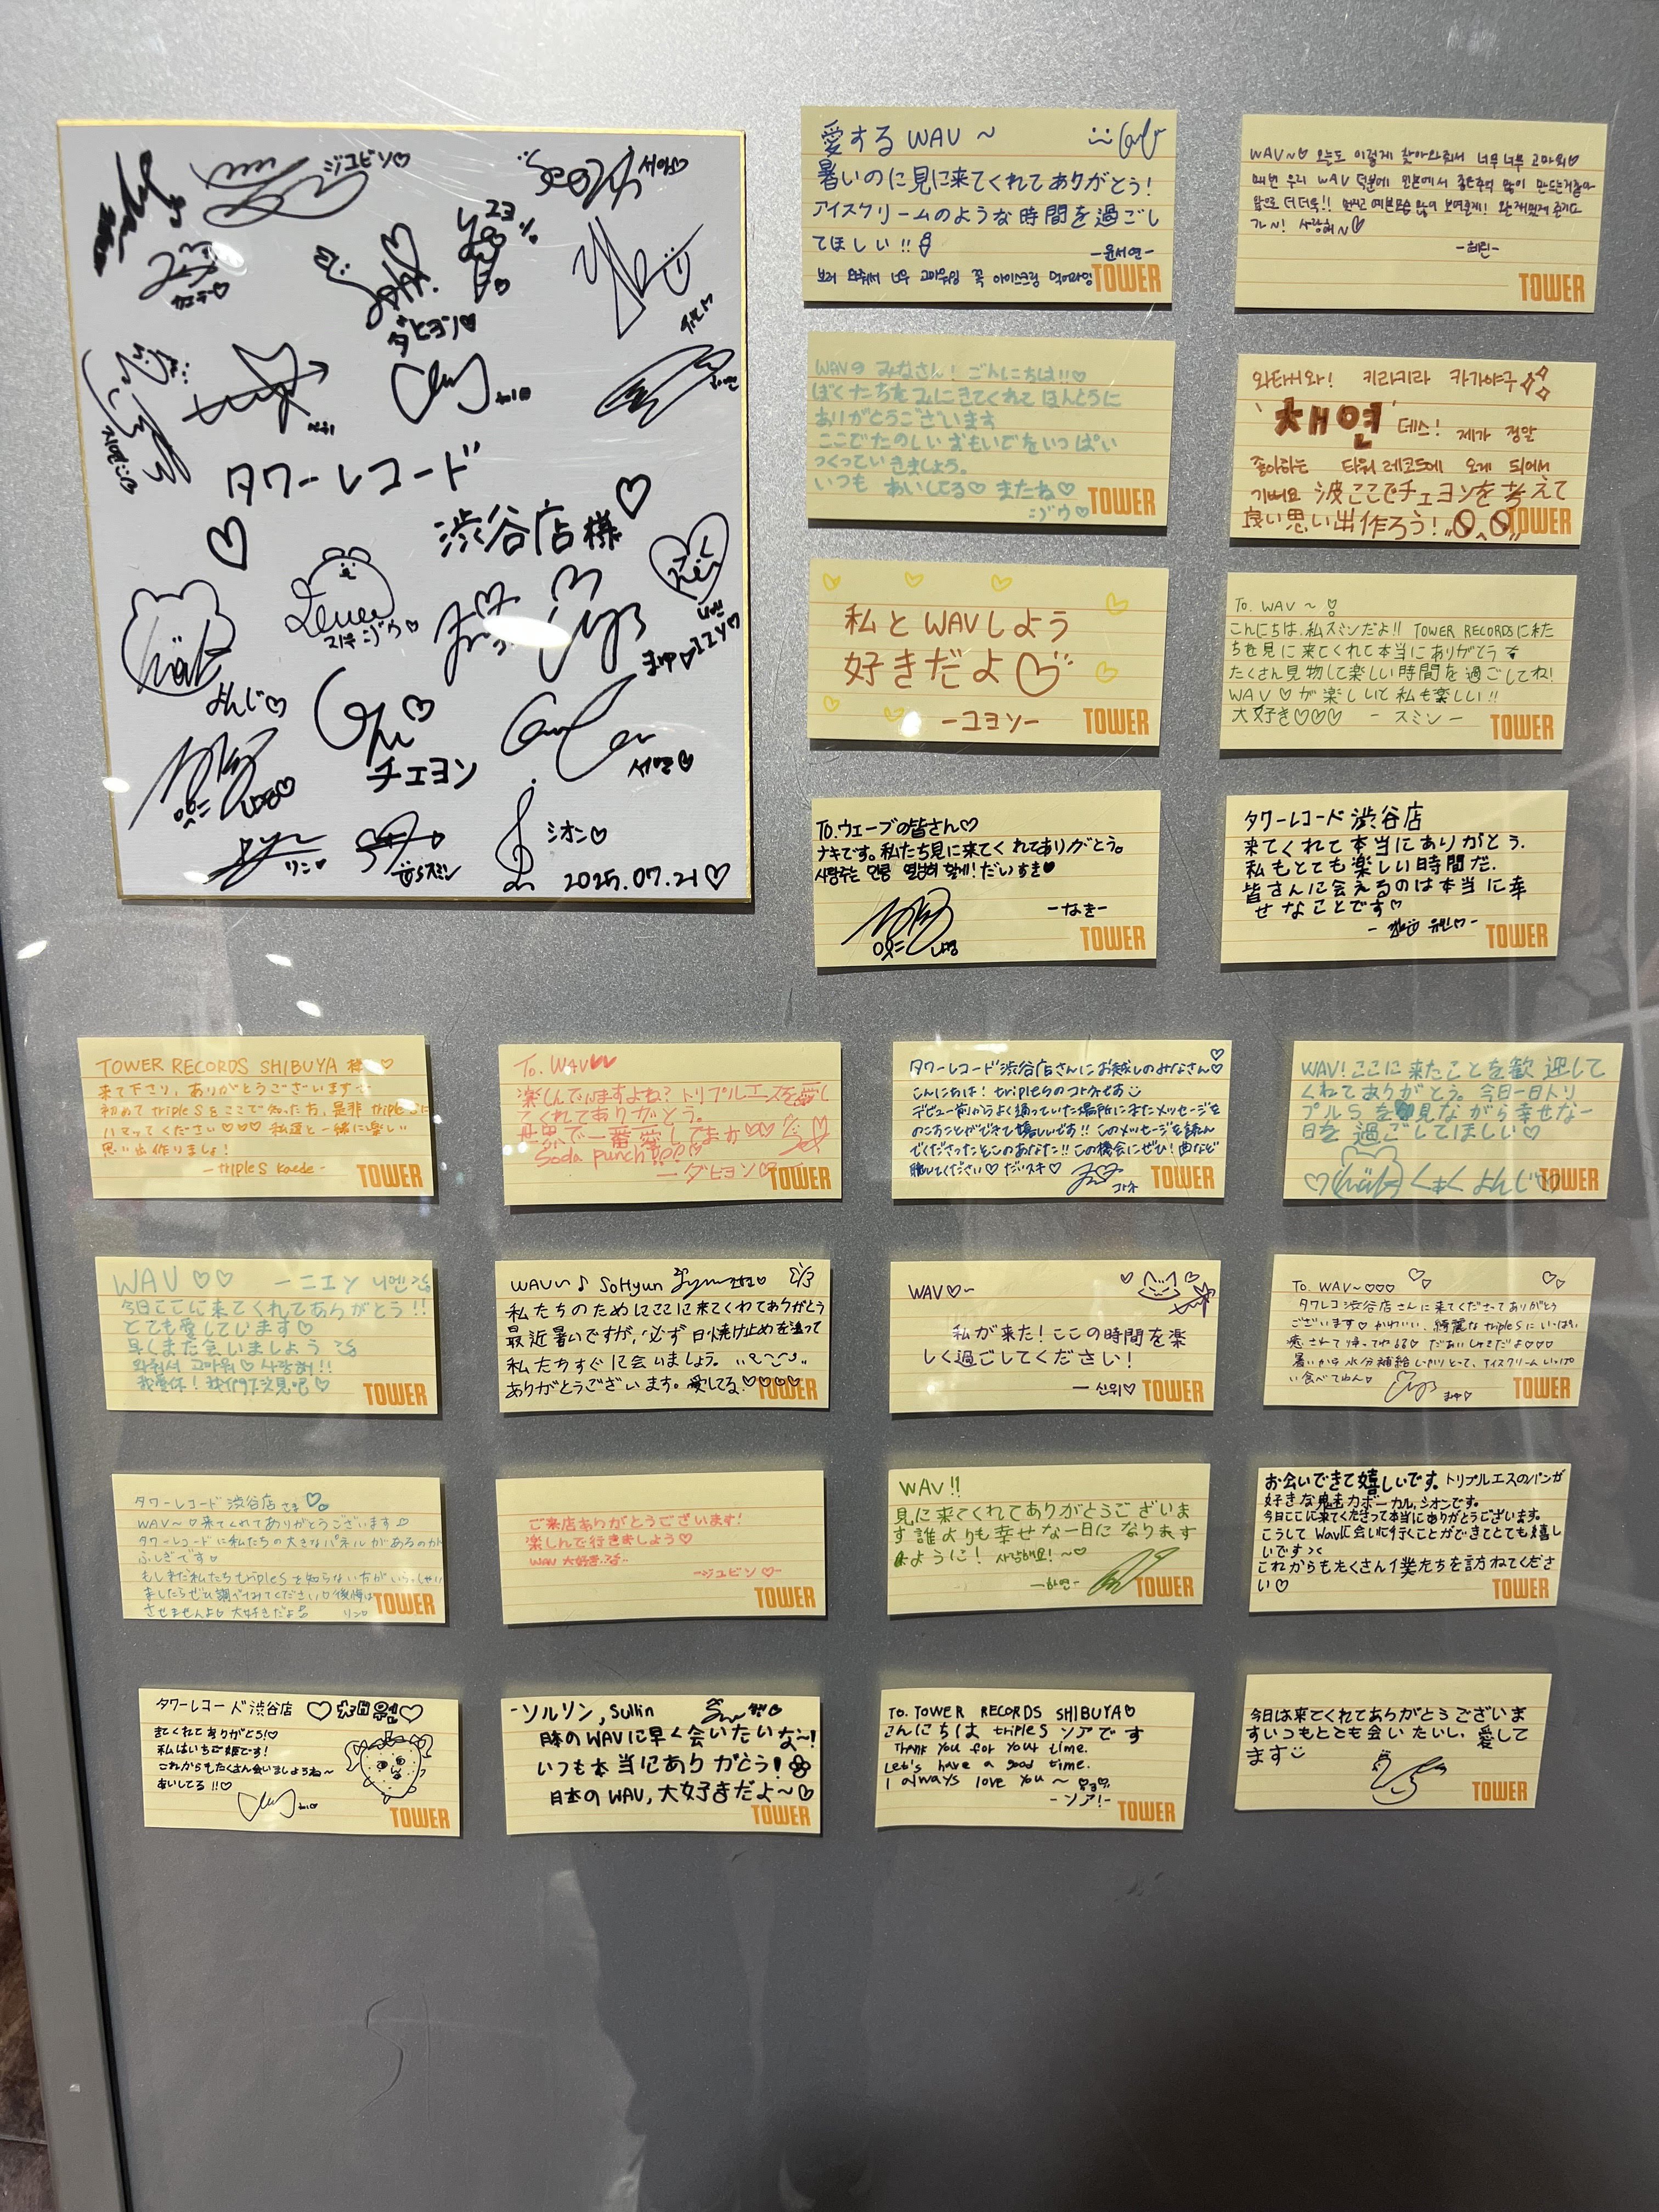 ジユビン♡
서아♡
カエデ♡
ダヒヨン♡
지연
タワーレコード
渋谷店様♡
コトネ
まゆ♡
よんじ♡
チェヨン
서연♡
リン♡
スミン
シオン♡
2025.07.21♡
愛する WAV ~
暑いのに見に来てくれてありがとう!
アイスクリームのような時間を過ごし
てほしい!!
-윤서연-
보러 와줘서 너무 고마워잉 꼭 아이스크림 먹어라잉
TOWER
WAV~♡ 오늘도 이렇게 찾아와줘서 너무너무 고마워♡
매번 우리 WAV 덕분에 일본에서 좋은추억 많이 만드는거같아
앞으로 더더욱!! 멋지고 예쁜모습 많이 보여줄게! 완전 재밌게 즐기다
가~! 사랑해~♡
-혜린-
TOWER
WAVの みなさん! こんにちは!!♡
ぼくたちを みにきてくれて ほんとうに
ありがとうございます
ここでたのしい おもいでをいっぱい
つくっていきましょう。
いつも あいしてる♡ またね♡
ジウ♡
TOWER
와타시와! 키라키라 카가야쿠
'채연' 데스! 제가 정말
좋아하는 타워레코드에 오게 되어서
기뻐요 波ここでチェヨンを考えて
良い思い出作ろう!
TOWER
私と WAVしよう
好きだよ♡
-ユヨン-
TOWER
To. WAV ~ ♡
こんにちは、私スミンだよ!! TOWER RECORDSに私た
ちを見に来てくれて本当にありがとう
たくさん見物して楽しい時間を過ごしてね!
WAV ♡が楽しいと私も楽しい!!
大好き♡♡♡ - スミン -
TOWER
To.ウェーブの皆さん♡
ナキです。私たち見に来てくれてありがとう。
사랑주는 만큼 열심히 할게! だいすき♥
-なき-
나경
TOWER
タワーレコード 渋谷店
来てくれて本当にありがとう.
私もとても楽しい時間だ.
皆さんに会えるのは本当に幸
せなことです♡
TOWER
TOWER RECORDS SHIBUYA 様 ♡
来て下さり、ありがとうございます
初めて tripleSをここで知った方、是非 tripleSに
ハマってください♡♡♡ 私達と一緒に楽しい
思い出作りましょ!
-tripleS Kaede-
TOWER
To. WAV
楽しんでますよね? トリプルエスを愛し
てくれてありがとう。
世界で一番愛してます♡♡
Soda punch
ーダヒヨン♡
TOWER
タワーレコード渋谷店さんにお越しのみなさん♡
こんにちは! tripleSのコトネであ
デビュー前からよく通っていた場所にまたメッセージを
のこすことができて嬉しいです!! このメッセージを読ん
でくださったそこのあなた!! この機会にぜひ! 曲など
聴いてください♡ だいスキ♡
コトネ
TOWER
WAV! ここに来たことを歓迎して
くれてありがとう。今日一日トリ
プルSを見ながら幸せな一
日を過ごしてほしい♡
TOWER
WAV ♡♡ ーニエン 니엔
今日ここに来てくれてありがとう!!
とても愛しています♡
早くまた会いましょう
와줘서 고마워♡ 사랑해!!
我爱你! 我们下次见吧♡
TOWER
WAV ♪ SoHyun
私たちのためにここに来てくれてありがとう
最近暑いですが、必ず日焼け止めを塗って
私たちすぐに会いましょう。
ありがとうございます。愛してる♡♡♡♡
TOWER
WAV♡~
私が来た! ここの時間を楽
しく過ごしてください!
ー 신위♡
TOWER
To. WAV~♡♡♡
タワレコ渋谷店さんに来てくださってありがとう
ございます♡ かわいい、綺麗な tripleSにいっぱい
癒されて帰ってねる♡ だあいしゅきだよ♡♡♡
暑いから水分補給しっかりとって、アイスクリームいっぱ
い食べてねん♡
まゆ♡
TOWER
タワーレコード 渋谷店さま
WAV~♡来てくれてありがとうございます
タワーレコードに私たちの大きなパネルがあるのが
ふしぎです♡
もしまだ私たち tripleSを知らない方がいらっしゃい
ましたらぜひ調べてみてください♡ 後悔は
させませんよ♡ 大好きだよ リン♡
TOWER
ご来店ありがとうございます!
楽しんで行きましょう♡
WAV 大好き
-ジユビン♡-
TOWER
WAV!!
見に来てくれてありがとうございま
す誰よりも幸せな一日になります
ように! 사랑해요! ~♡
-하연-
TOWER
お会いできて嬉しいです。トリプルエスのパンが
好きな魅力ボーカル、シオンです。
今日ここに来てくださって本当にありがとうございます。
こうして Wavに会いに行くことができてとても嬉し
いです><
これからもたくさん僕たちを訪ねてくださ
い♡
TOWER
タワーレコード渋谷店 ♡채원♡
きてくれてありがとう!♡
私はいちご姫です!
これからもたくさん会いましょうね~
あいしてる!!♡
TOWER
-ソルリン, Sullin
日本のWAVに早く会いたいな~!
いつも本当にありがとう!
日本のWAV, 大好きだよ~♡
TOWER
To. TOWER RECORDS SHIBUYA♡
こんにちは tripleS ソアです
Thank you for your time.
Let's have a good time.
I always love you ~
-ソア!-
TOWER
今日は来てくれてありがとうございま
すいつもとても会いたいし、愛して
ます
TOWER